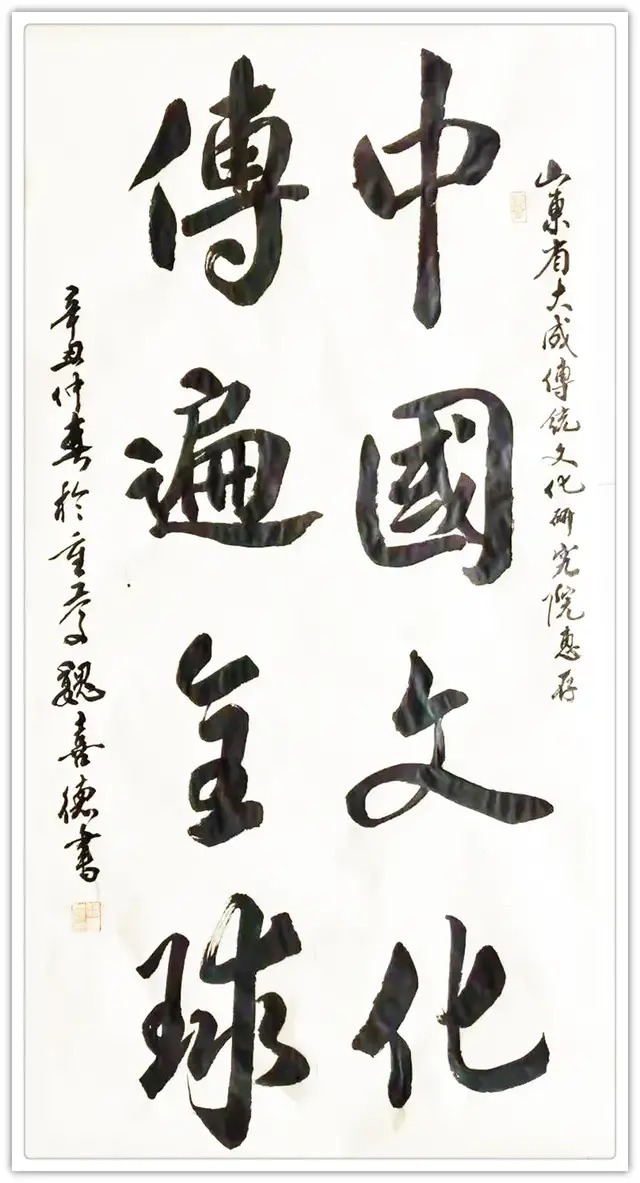 山東省大成傳統文化研究院惠存
中國文化
傳遍全球
辛丑仲春於重慶魏喜德書